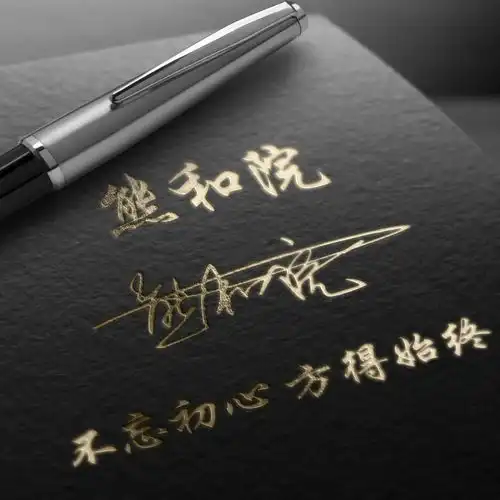 熊和院
熊和院
不忘初心 方得始终